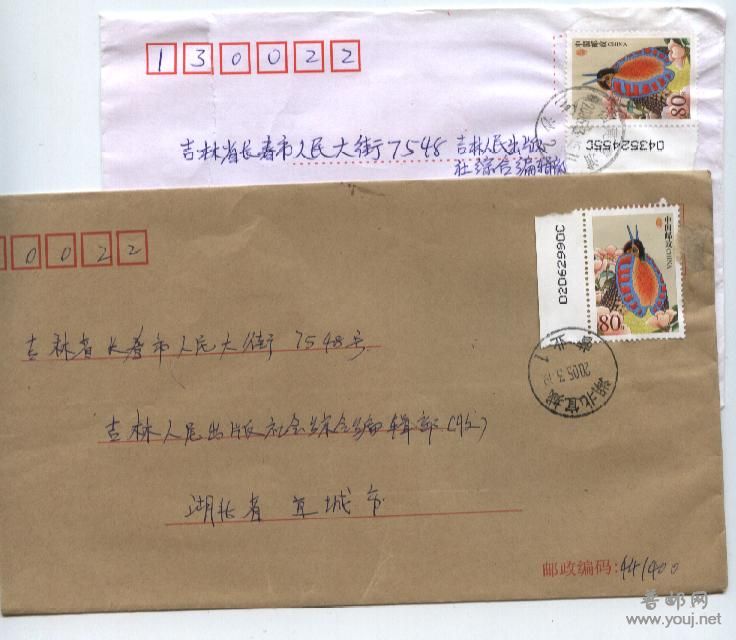 130022
中国邮政 CHINA
80
0435245SC
吉林省长春市人民大街7548 吉林人民出版
社综合编辑部
0022
02062990C
中国邮政 CHINA
80
吉林省长春市人民大街7548号
湖北宜城
2005.3.
营业1
吉林人民出版社综合编辑部(收)
湖北省宜城市
邮政编码:441400
善邮网
www.youj.net